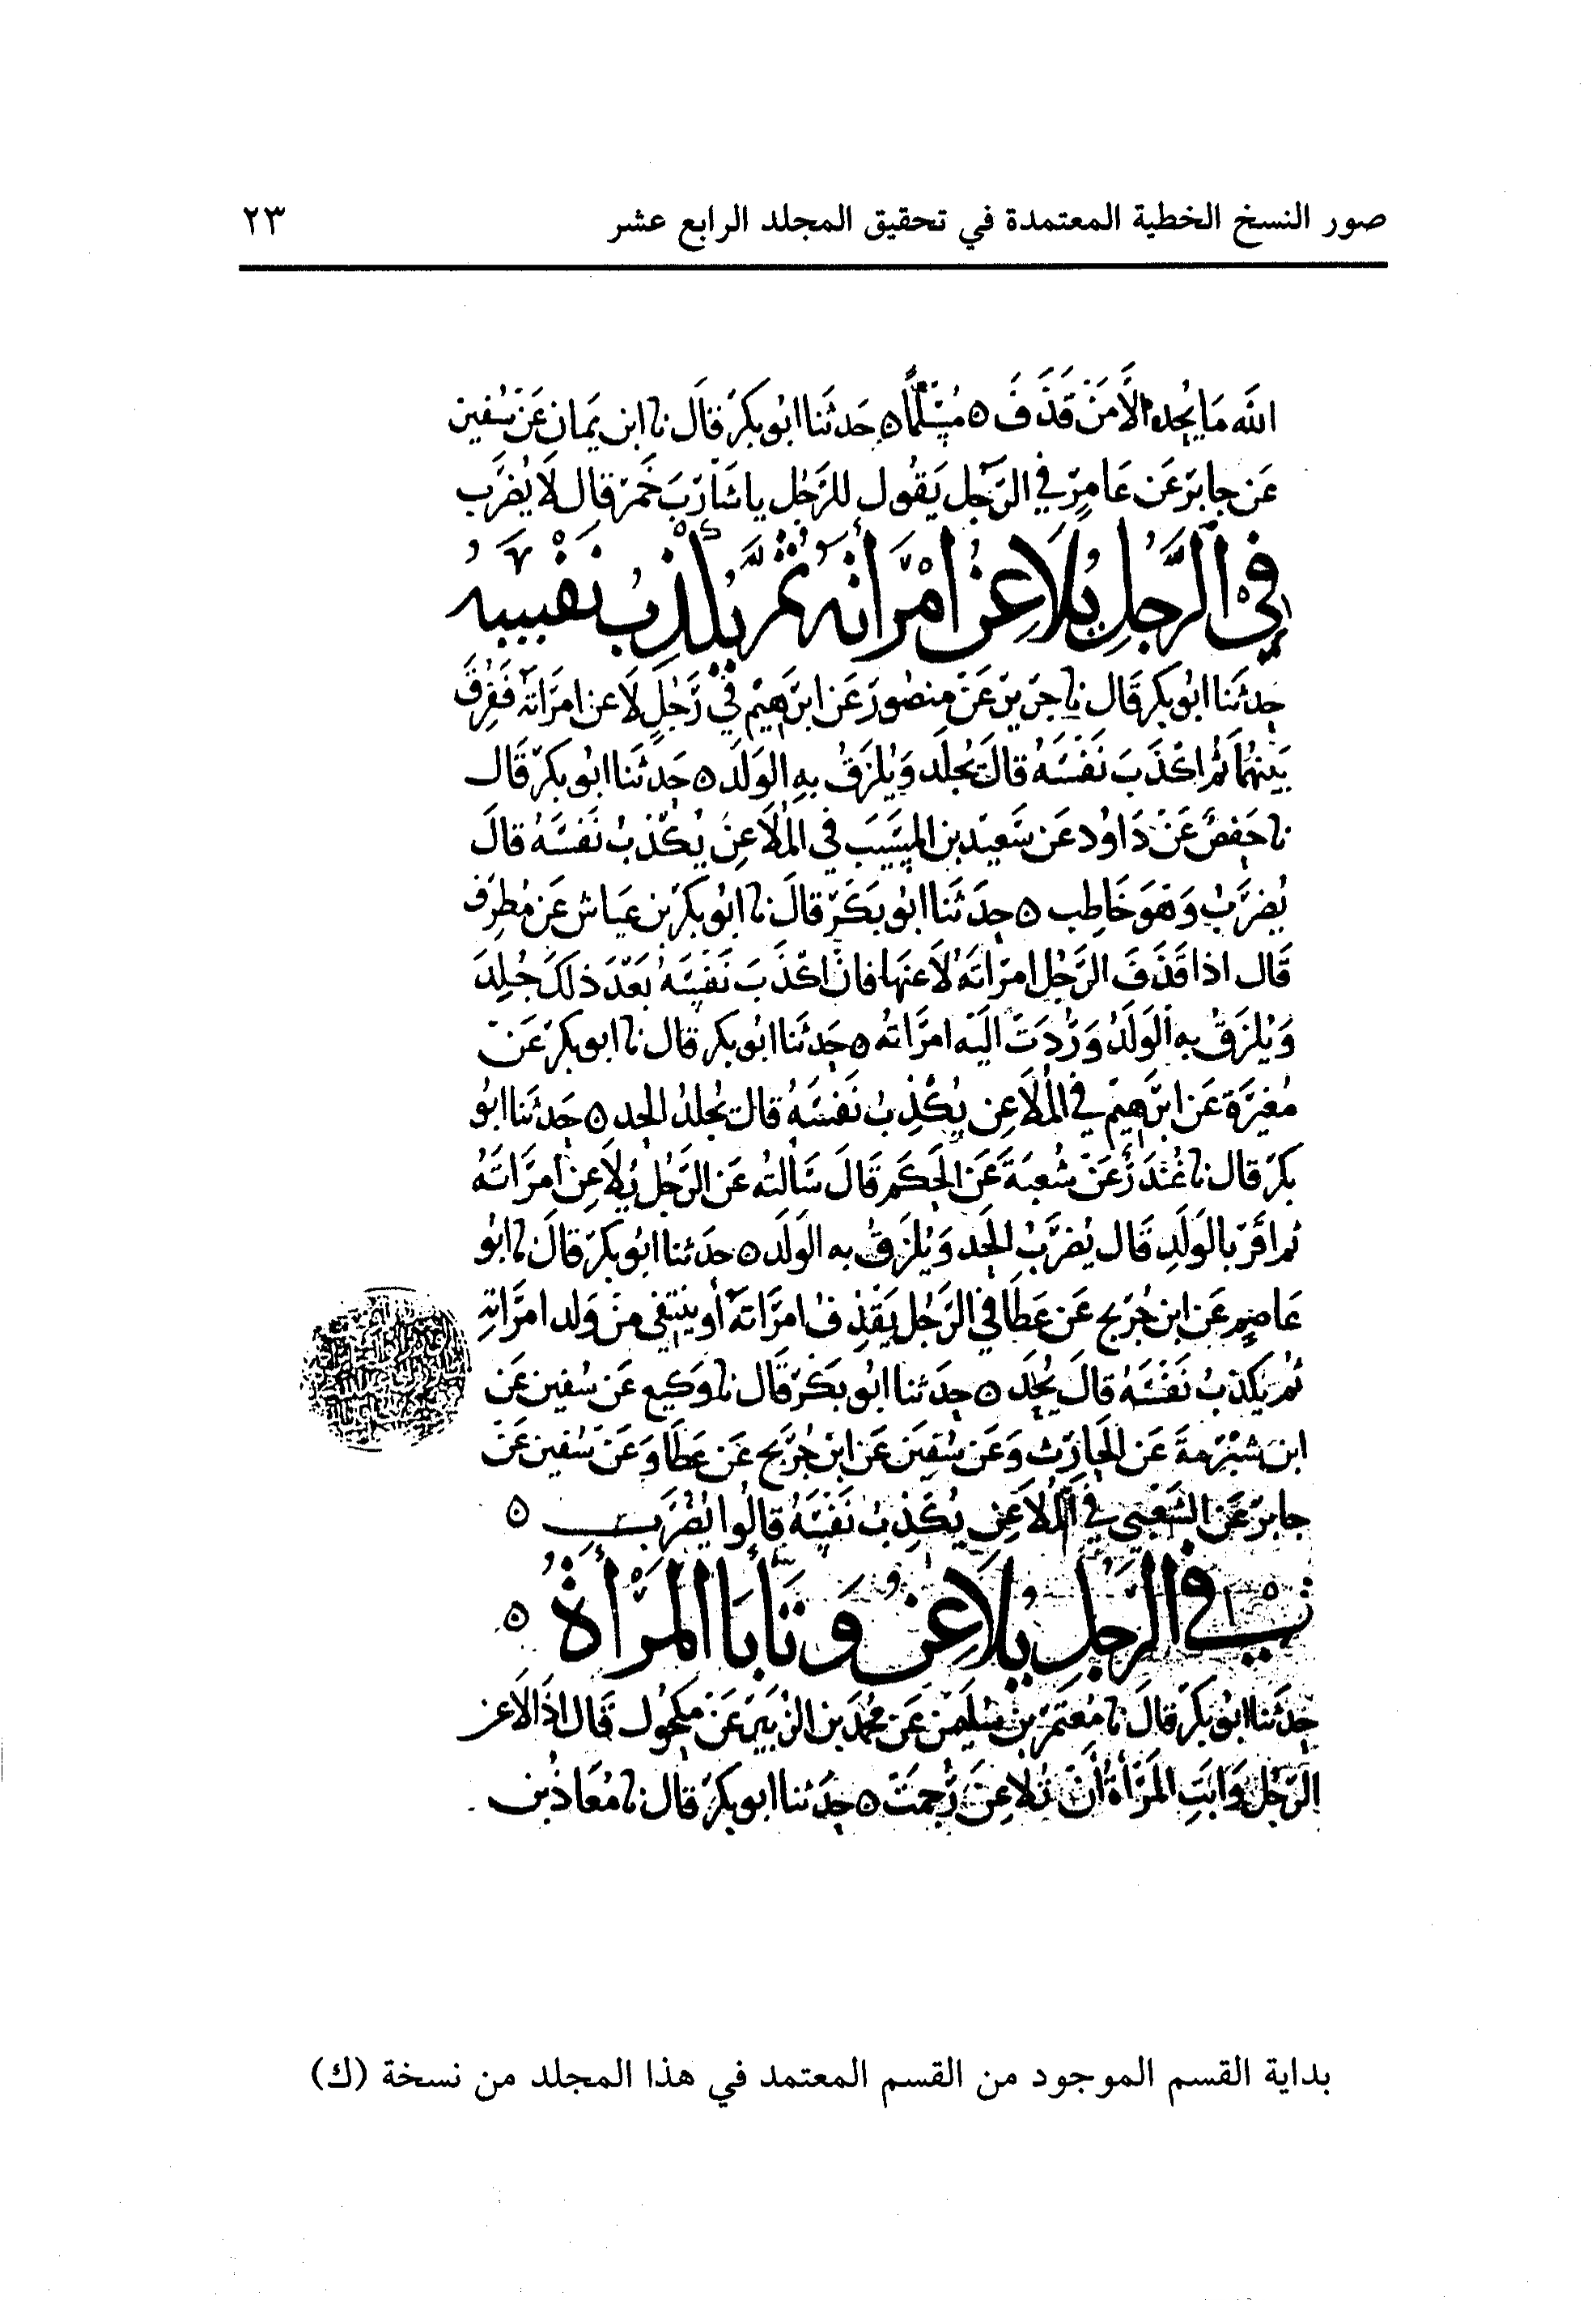 صور النسخ الخطية المعتمدة في تحقيق المجلد الرابع عشر ٢٣
الله مَا يُحد الَّا مَن قَذَفَ ٥ مُسْلمًا ٥ حَدثَنا ابُو بكر قالَ نا ابن يَمان عَن سُفين
عَن جابر عَن عَامِر في الرَّجل يَقُول للرَّجُل يا شَارِبَ خَمر قال لَا يُضرَب
في الرَّجلِ يُلَاعِنُ امْرَأته ثمَّ يُكذِبُ نَفْسَهُ
حدثنا ابُو بكر قَال نا جرير عَن منصُور عَن ابرَهيم في رَجُلٍ لَاعن امرَاتَهُ فَفُرِقَ
بَينهُمَا ثُم اكْذَبَ نَفْسَهُ قالَ يُجلَد وَيُلزَقُ بهِ الوَلَد ٥ حَدثَنا ابُو بكر قَال
نا حَفصٌ عَنْ دَاوُد عَن سَعيد بن المسَيَب في المُلَاعِنُ يُكَذبُ نَفسَهُ قالَ
يُضرَبُ وَهوَ خَاطِب ٥ حدَثَنا ابُو بَكر قالَ نا ابُو بكر بن عيَاش عَن مُطرف
قَال اذا قَذَفَ الرَّجُل امرَاتَهُ لَاعنهَا فان اكْذَبَ نَفسَهُ بَعدَ ذلكَ جُلِدَ
وَيُلزَقُ بهِ الوَلَدُ وَرُدَتْ اليَه امرَاتهُ ٥ حَدثَنا ابُو بكر قال نا ابو بكر عَن
مُغيرَة عَن ابرَهيم في المُلَاعِن يُكْذِبُ نَفسَهُ قال يُجلدُ الحد ٥ حَدثَنا ابُو
بكر قال نا غُندَرٌ عَن شُعبَةَ عَن الحَكَم قَالَ سَالتهُ عَن الرَّجُل يُلَاعِن امرَاتَهُ
ثم اقَرّ بالوَلَدِ قَال يُضرَبُ الحَد وَيُلزَقُ به الوَلَد ٥ حدَثنا ابُو بكر قالَ نا ابُو
عَاصِم عَن ابن جُرَيج عَن عَطَا في الرَّجُل يَقْذفُ امرَاتَهُ أو ينتفي مِن وَلد امرَاتِهِ
ثُم يكذبُ نَفسَهُ قالَ يُحَد ٥ حدَثنا ابُو بَكر قَال نا وَكيع عَن سُفين عَن
ابن شبْرمةَ عَن الحَارث وَعَن سُفين عَن ابن جُرَيج عَن عَطَا وَعَن سُفين عَن
جابر عَن الشَعبي في المُلَاعِن يُكَذِبُ نَفسَهُ قالُوا يُضرَب ٥
في الرَّجلِ يُلَاعِنُ وَ تَأبَا المَرْأةُ ٥
حدَثنا ابُو بكر قالَ نا مُعتَمر بن سُليمن عَن محُمد بن الزُبَير عَن مَكحُول قَال اذَا لَاعَن
الرَّجُل وَابَتِ المَرأةُ أن تُلَاعِنَ رُجمَتْ ٥ حدَثنا ابو بكر قال نا مُعَاذ بن
بداية القسم الموجود من القسم المعتمد في هذا المجلد من نسخة (ك)